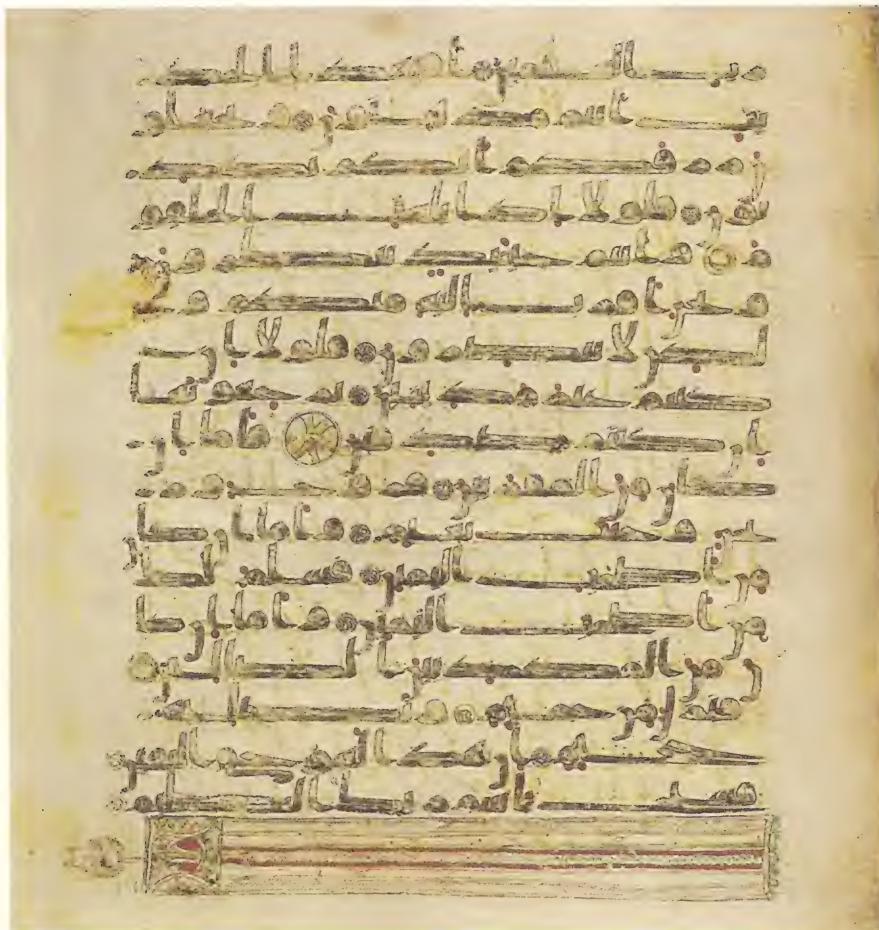 من رب العلمين افبهذا الحد
يث انتم مدهنون وتجعلو
ن رزقكم انكم تكذبو
ن فلولا اذا بلغت الحلقو
م وانتم حينئذ تنظرون و
نحن اقرب اليه منكم و
لكن لا تبصرون فلولا ان
كنتم غير مدينين ترجعونها
ان كنتم صدقين فاما ان
كان من المقربين فروح ور
يحن وجنت نعيم واما ان كان
من اصحب اليمين فسلم لك
من اصحب اليمين واما ان كا
ن من المكذبين الضالين
فنزل من حميم وتصلية
جحيم ان هذا لهو حق اليقين
فسبح باسم ربك العظيم